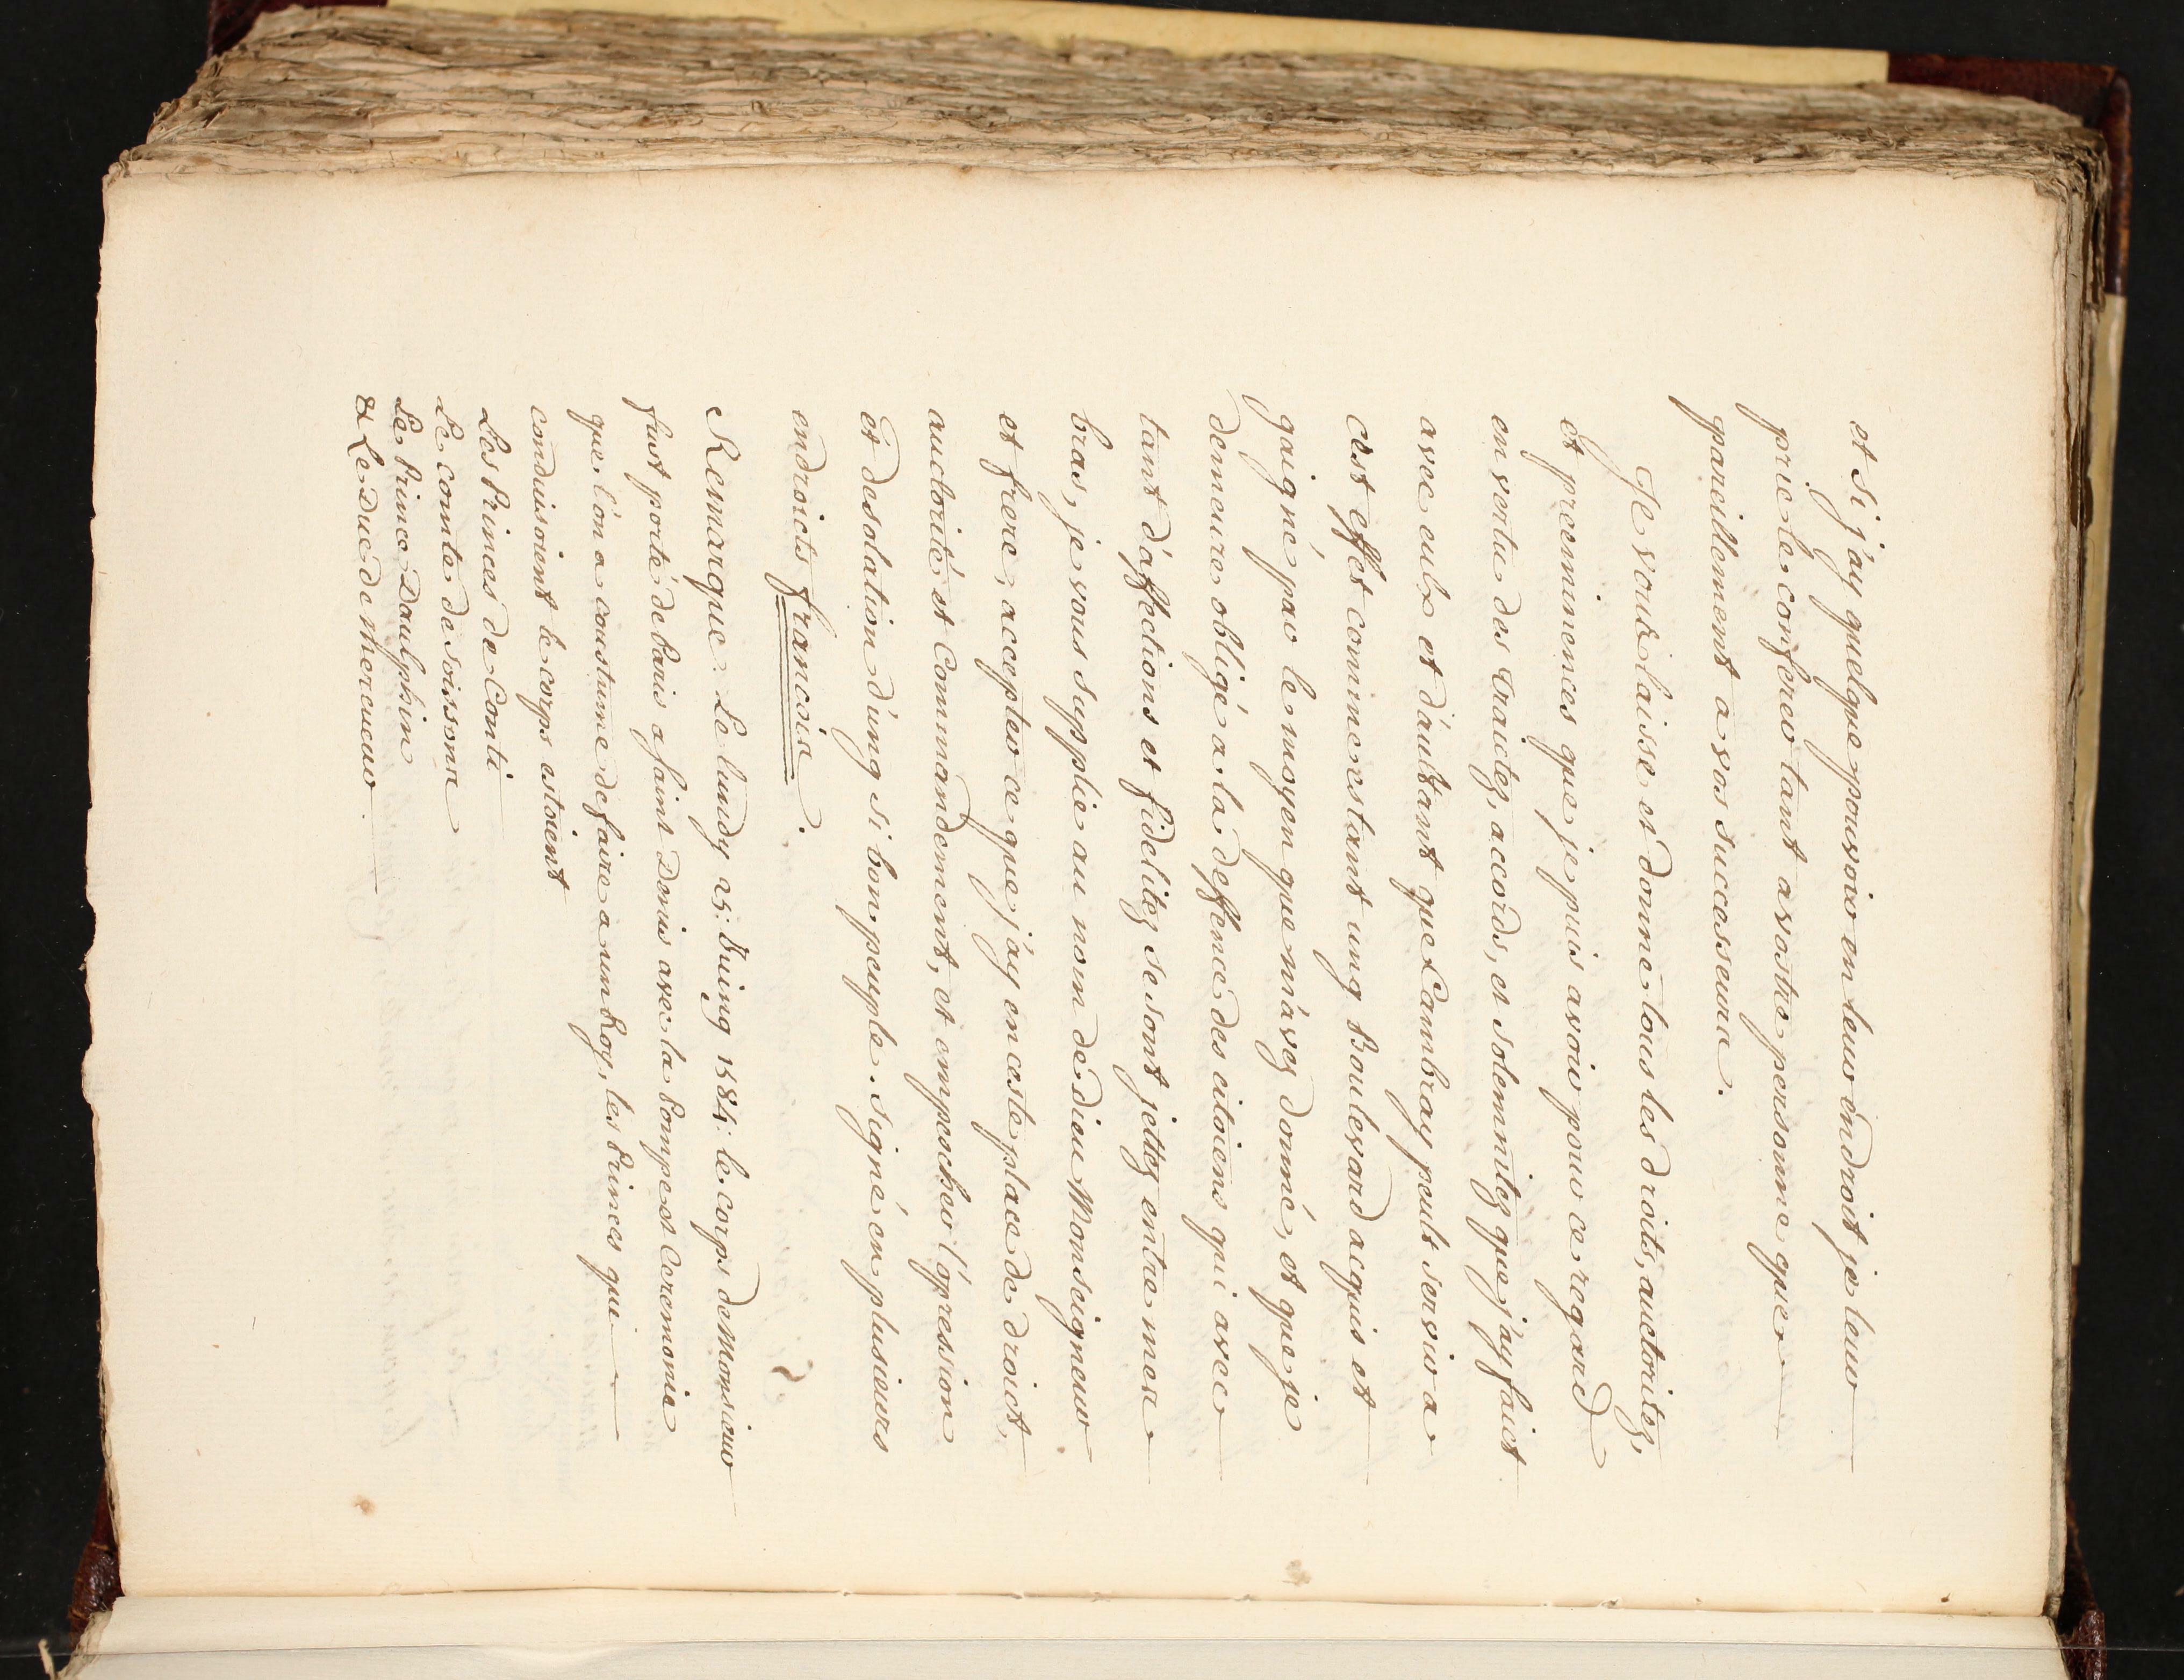 et si j'ay quelque pouvoir en leur endroit je leur
prie le conferer tant a vostre personne que
pareillement a vos successeurs.
Je vous laisse et donne tous les droits, auctoritez,
et preeminences que je puis avoir pour ce regard
en vertu des traictez, accords, et solemnitez que j'ay faict
avec eulx et d'aultant que Cambray peult servir a
cest effet comme estant ung Boulevard acquis et
gaigné par le moyen que m'avez donné, et que je
demeure obligé a la deffence des citoiens qui avec
tant d'affections et fidelitez se sont jettez entre mes
bras, je vous supplie au nom de dieu Monseigneur
et frere, accepter ce que j'ay en ceste place de droict,
auctorité et commandement, et empescher l'opression
et desolation d'ung si bon peuple. signé en plusieurs
endroicts françois.
Remarque. Le lundy 25. Juing 1584. le corps de Monsieur
fust porté de Paris a saint Denis avec la Pompe et Ceremonie
que l'on a coustume de faire a un Roy, les Princes qui
conduisoient le corps estoient
Les Princes de Conti
Le Comte de Soissons
Le Prince Daulphin
& Le Duc de Mercueur